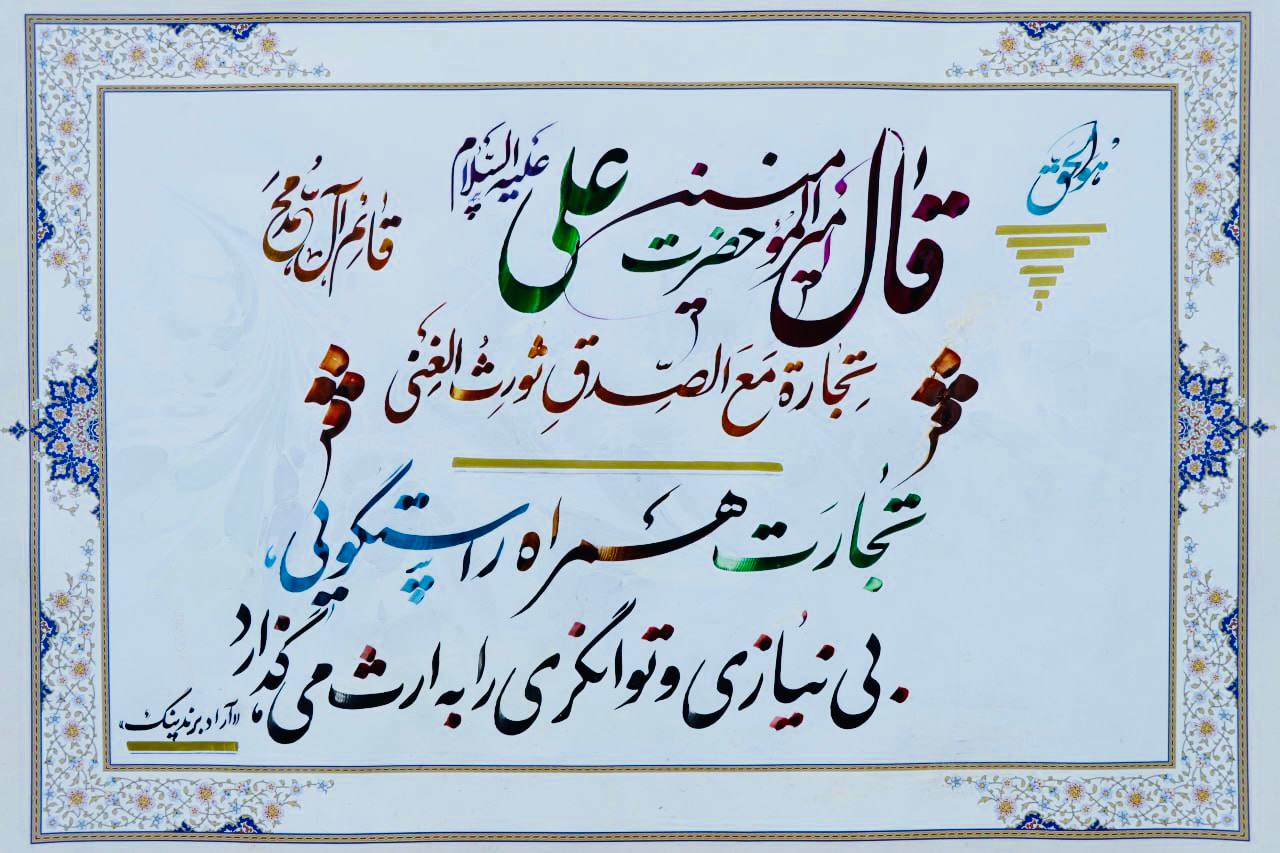 هو الحق
قال امیرالمؤمنین حضرت علی علیه السلام
قائم آل محمد
تِجارة مَعَ الصِّدقِ تُورِثُ الغِنی
تجارَت همراه راستگویی،
بی نیازی و توانگری را به ارث می گذارد
«آراد برندینگ»